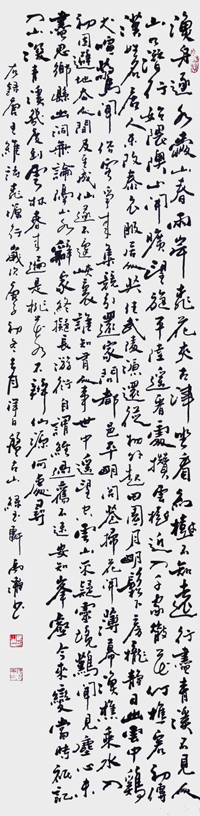 漁舟逐水愛山春兩岸桃花夾古津坐看紅樹不知遠行盡青溪不見人
山口潛行始隈隩山開曠望旋平陸遙看一處攢雲樹近入千家散花竹樵客初傳
漢姓名居人未改秦衣服居人共住武陵源還從物外起田園月明松下房櫳靜日出雲中雞
犬喧驚聞俗客爭來集競引還家問都邑平明閭巷掃花開薄暮漁樵乘水入
初因避地去人間及至成仙遂不還峽裏誰知有人事世中遙望空雲山不疑靈境難聞見塵心未
盡思鄉縣出洞無論隔山水辭家終擬長游衍自謂經過舊不迷安知峰壑今來變當時只記
入山深青溪幾度到雲林春來遍是桃花水不辨仙源何處尋
右錄唐王維詩桃源行歲次